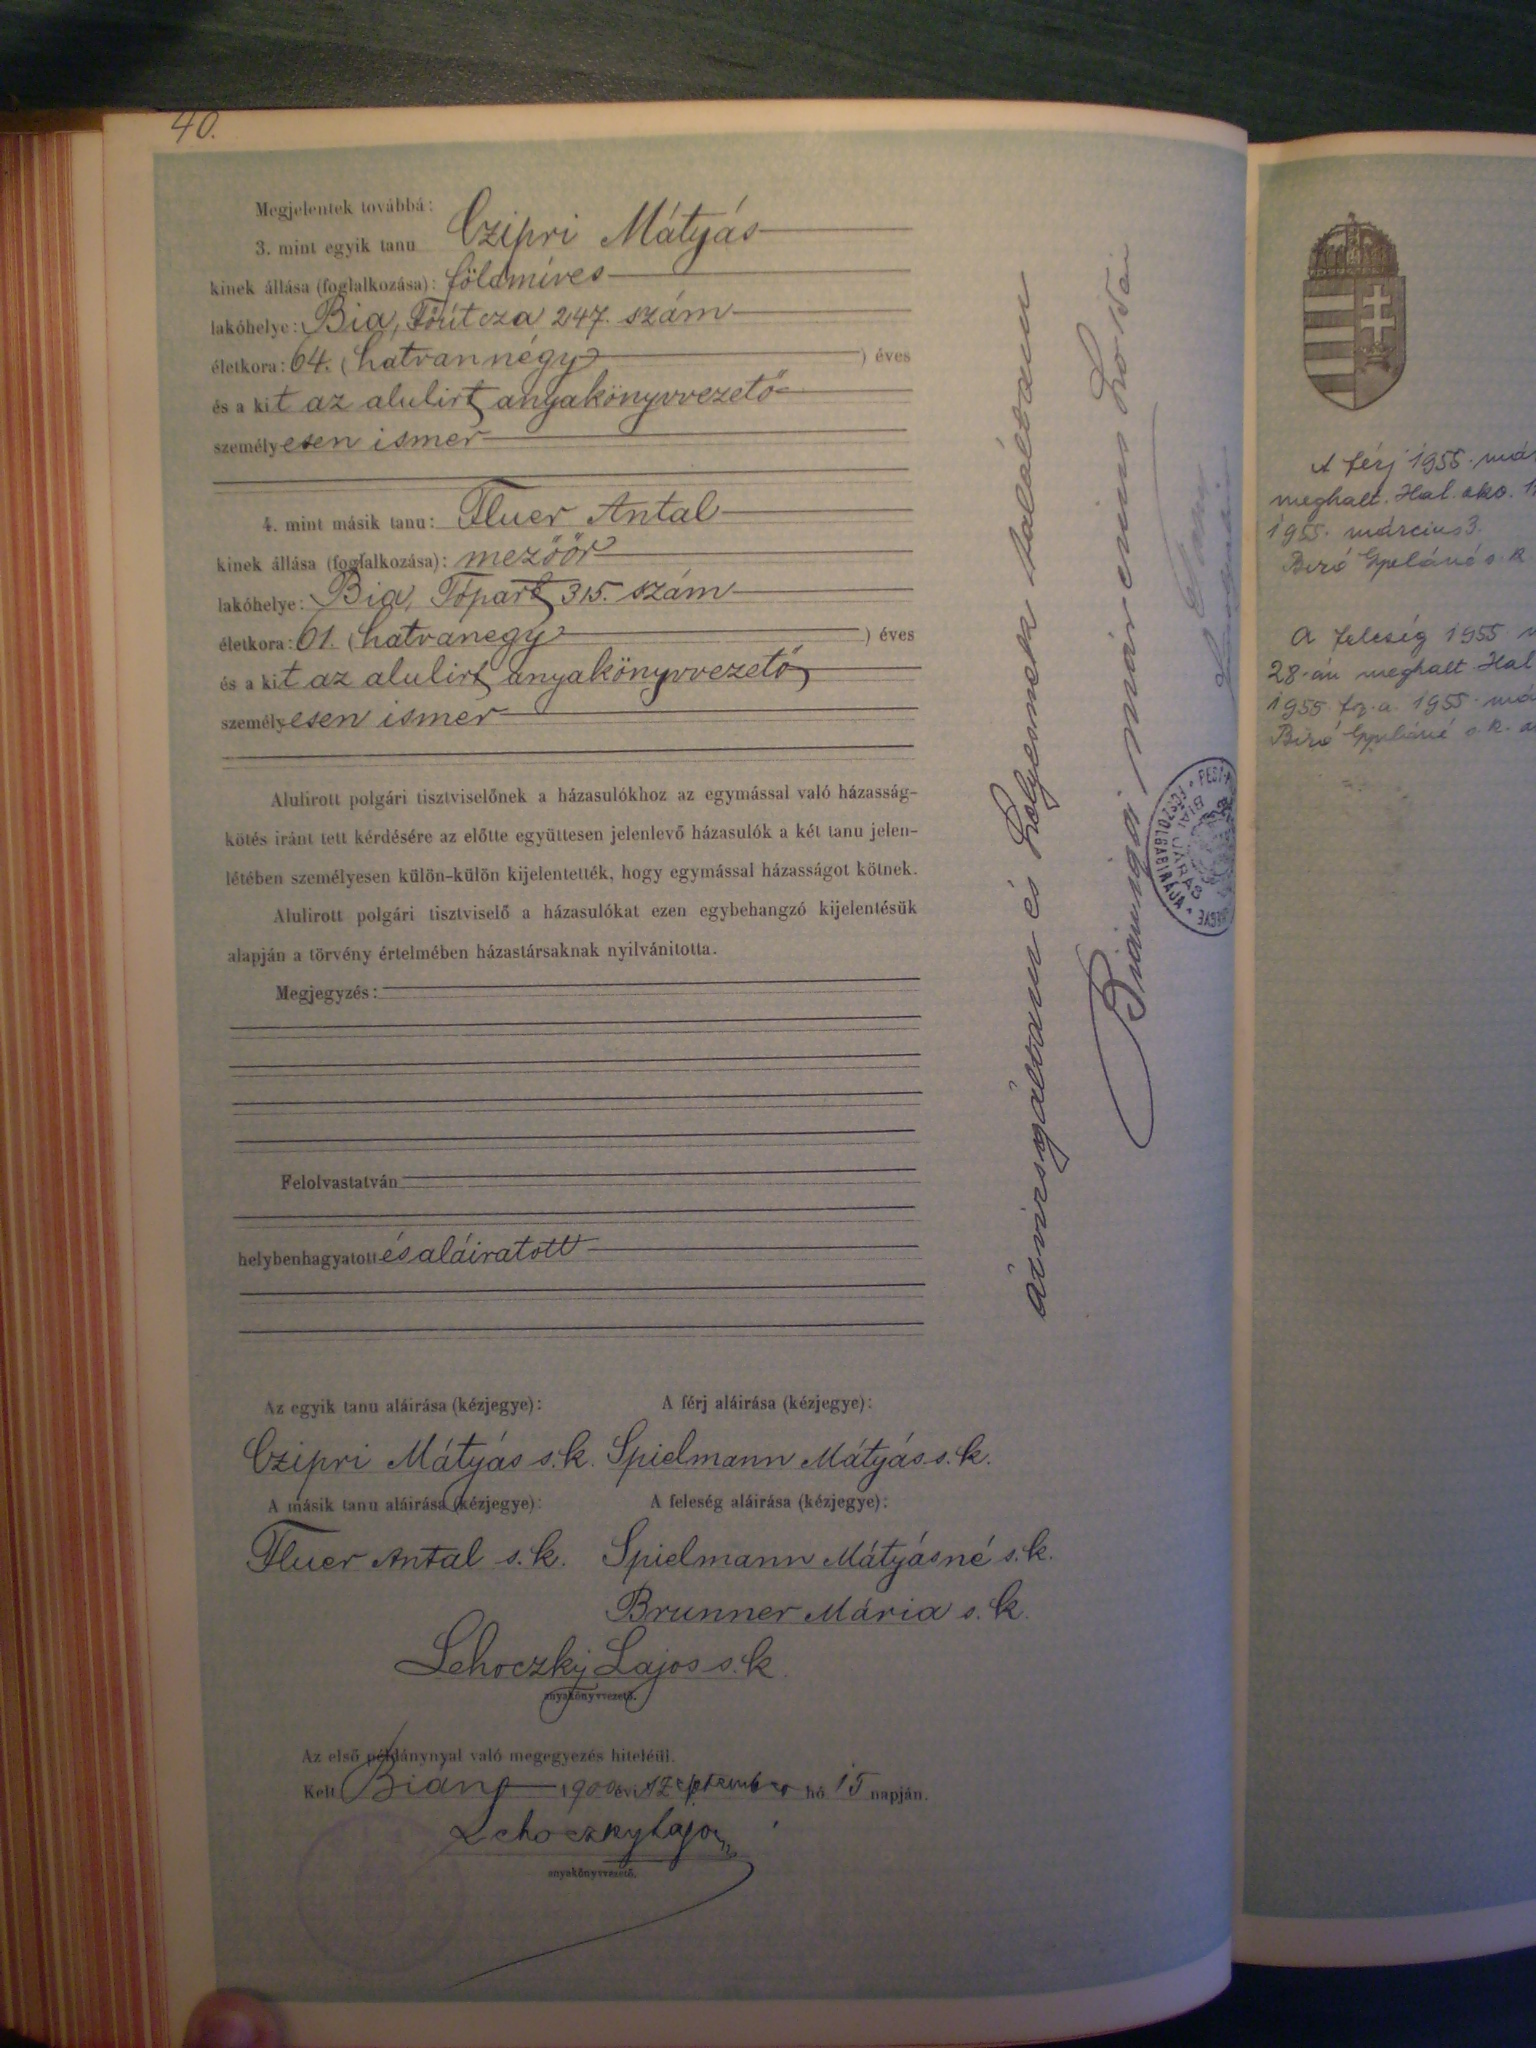 40.
Megjelentek továbbá:
3. mint egyik tanu Czipri Mátyás
kinek állása (foglalkozása): földmíves
lakóhelye: Bia, Főútcza 247. szám
életkora: 64. (hatvannégy) éves
és a kit az alulirt anyakönyvvezető
személyesen ismer
4. mint másik tanu: Fluer Antal
kinek állása (foglalkozása): mezőőr
lakóhelye: Bia, Tópart 315. szám
életkora: 61. (hatvanegy) éves
és a kit az alulirt anyakönyvvezető
személyesen ismer
Alulirott polgári tisztviselőnek a házasulókhoz az egymással való házasság-
kötés iránt tett kérdésére az előtte együttesen jelenlevő házasulók a két tanu jelen-
létében személyesen külön-külön kijelentették, hogy egymással házasságot kötnek.
Alulirott polgári tisztviselő a házasulókat ezen egybehangzó kijelentésük
alapján a törvény értelmében házastársaknak nyilvánitotta.
Megjegyzés:
Felolvastatván
helybenhagyatott és aláiratott
Az egyik tanu aláirása (kézjegye): A férj aláirása (kézjegye):
Czipri Mátyás s.k. Spielmann Mátyás s.k.
A másik tanu aláirása (kézjegye): A feleség aláirása (kézjegye):
Fluer Antal s.k. Spielmann Mátyásné s.k.
Brunner Mária s.k.
Lehoczky Lajos s.k.
anyakönyvvezető.
Az első példánynyal való megegyezés hiteléül.
Kelt Bián 1900 évi szeptember hó 15 napján.
Lehoczky Lajos
anyakönyvvezető.
átvizsgáltam és helyesnek találtam
Bia
BIAI JÁRÁS
FŐSZOLGABIRÁJA
A férj 1955. már
meghalt. Hal. ako.
1955. március 3.
Biró s. k
A feleség 1955
28-án meghalt Hal
1955 1955. má
Biró s. k. a